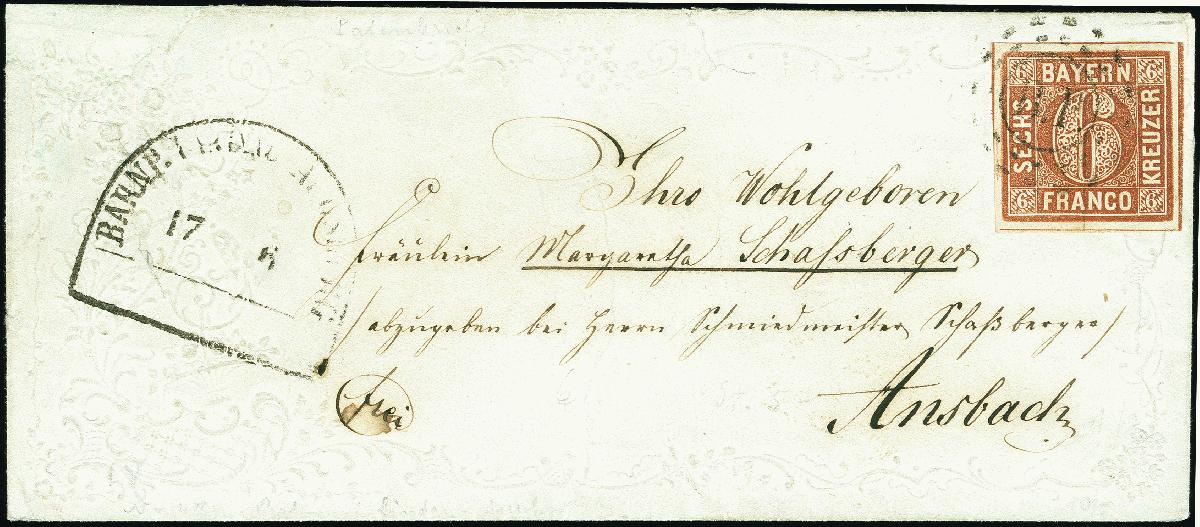 BAYERN
SECHS
KREUZER
FRANCO
6 6
6
6 6
BAHNP.
17
Ihro Wohlgeboren
Fräulein Margaretha Schafsberger
/abzugeben bei Herrn Schmiedmeister Schaßberger/
Ansbach
frei